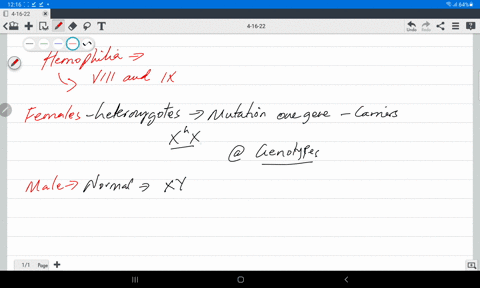 12:16
64%
4-16-22
4-16-22
Undo
Redo
Share
Hemophilia →
↳ VIII and IX
Females - heterozygotes → Mutation one gene - Carriers
XʰX
@ Genotypes
Male → Normal → XY
1/1 Page +